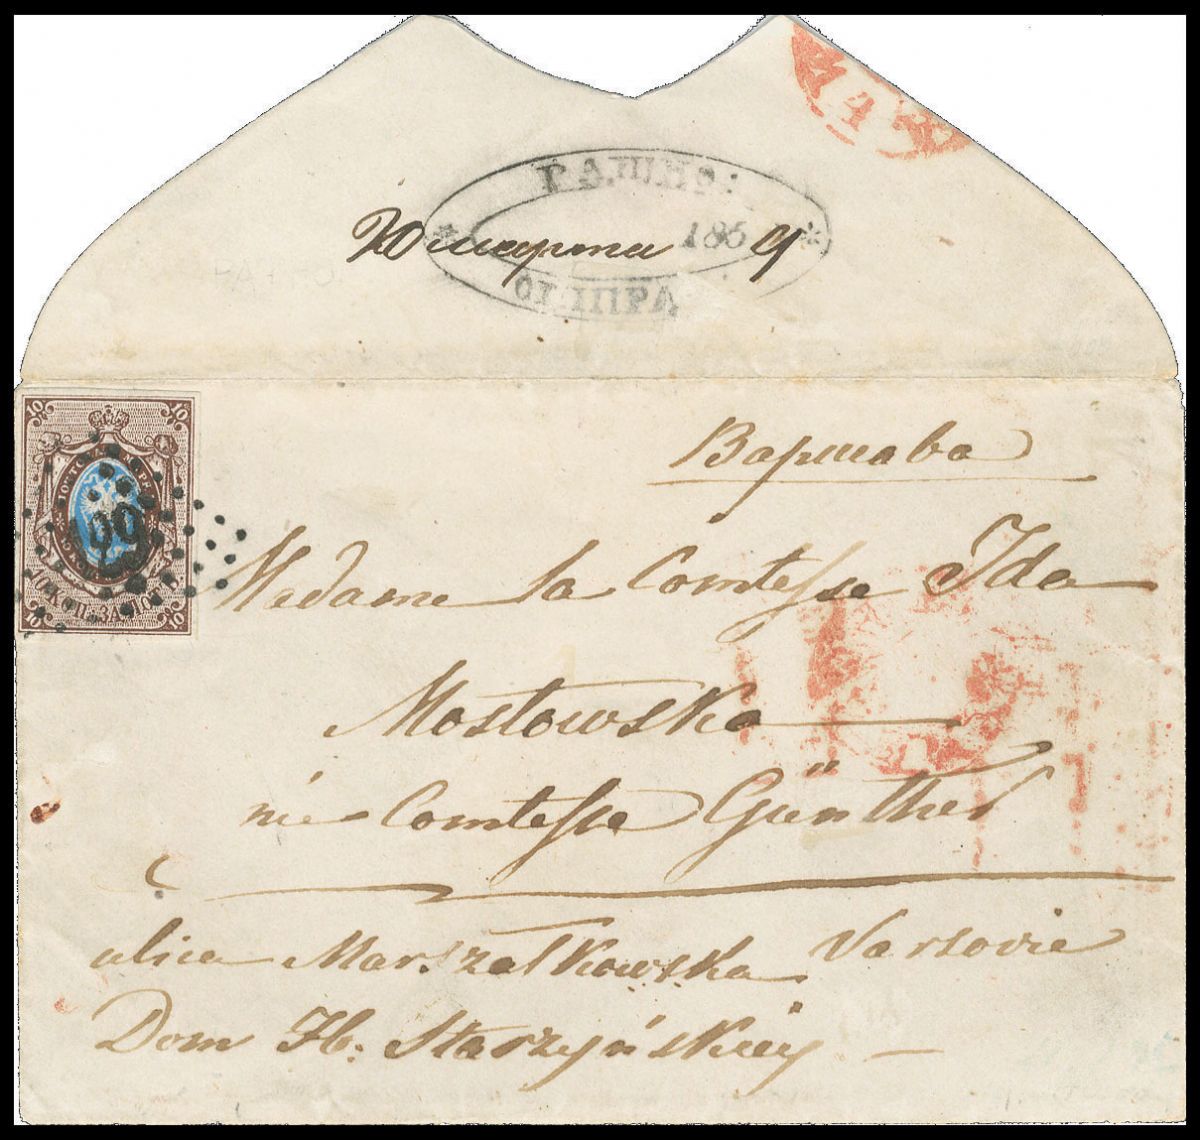 143
РАШКО
20 марта 1869
ОТПРА
10 10
10
КОП. ЗА ЛОТ
10 10
Варшава
Madame la Comtesse Ida
Mostowska
née Comtesse Günther
ulica Marszałkowska Varsovie
Dom Hb. Starzyńskiéy